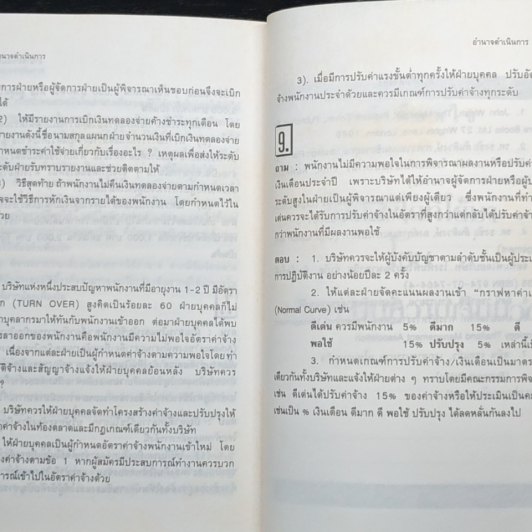 นาจดำเนินการ
การฝ่ายหรือผู้จัดการฝ่ายเป็นผู้พิจารณาเห็นชอบก่อนจึงจะเบิก
ได้
2) ให้มีรายงานการเบิกเงินทดลองจ่ายค้างชำระทุกเดือน โดย
รายงานดังนี้ชื่อนามสกุลแผนกฝ่ายจำนวนเงินที่เบิกเงินทดลองจ่าย
กำหนดชำระค่าใช้จ่ายเกี่ยวกับเรื่องอะไร ? เหตุผลเพื่อส่งให้ระดับ
ระดับฝ่ายรับทราบรายงานและช่วยติดตามให้
) วิธีสุดท้าย ถ้าพนักงานไม่คืนเงินทดลองจ่ายตามกำหนดเวลา
จะใช้วิธีการหักเงินจากรายได้ของพนักงาน โดยกำหนดไว้ใน
บริษัทแห่งหนึ่งประสบปัญหาพนักงานที่มีอายุงาน 1-2 ปี มีอัตรา
(TURN OVER) สูงคิดเป็นร้อยละ 60 ฝ่ายบุคคลก็ไม่
บุคลากรมาให้ทันกับพนักงานเข้าออก ต่อมาฝ่ายบุคคลได้พบ
ลาออกของพนักงานคือพนักงานมีความไม่พอใจอัตราค่าจ้าง
เนื่องจากแต่ละฝ่ายเป็นผู้กำหนดค่าจ้างตามความพอใจโดยทำ
ติจ้างและสัญญาจ้างแจ้งให้ฝ่ายบุคคลย้อนหลัง บริษัทควร
?
บริษัทควรให้ฝ่ายบุคคลจัดทำโครงสร้างค่าจ้างและปรับปรุงให้
ค่าจ้างในท้องตลาดและมีกฎเกณฑ์เดียวกันทั้งบริษัท
ให้ฝ่ายบุคคลเป็นผู้กำหนดอัตราค่าจ้างพนักงานเข้าใหม่ โดย
ค่าจ้างตามข้อ 1 หากผู้สมัครมีประสบการณ์ทำงานควรบวก
การณ์เข้าไปในอัตราค่าจ้างด้วย
อำนาจดำเนินการ
3). เมื่อมีการปรับค่าแรงขั้นต่ำทุกครั้งให้ฝ่ายบุคคล ปรับอัต
จ้างพนักงานประจำด้วยและควรมีเกณฑ์การปรับจ้างทุกระดับ
9.
ถาม : พนักงานไม่มีความพอใจในการพิจารณาผลงานหรือปรับค่า
เงินเดือนประจำปี เพราะบริษัทได้ให้อำนาจผู้จัดการฝ่ายหรือผู้บ
ระดับสูงในฝ่ายเป็นผู้พิจารณาแต่เพียงผู้เดียว ซึ่งพนักงานที่ทำ
เด่นควรจะได้รับการปรับค่าจ้างในอัตราที่สูงกว่าแต่กลับได้ปรับค่าจ้า
กว่าพนักงานที่มีผลงานพอใช้
ตอบ : 1. บริษัทควรจะให้ผู้บังคับบัญชาตามลำดับชั้นเป็นผู้ประเ
การปฏิบัติงาน อย่างน้อยปีละ 2 ครั้ง
2. ให้แต่ละฝ่ายจัดคะแนนผลงานเข้า "กราฟหาค่าเฉ
(Normal Curve) เช่น
ดีเด่น ควรมีพนักงาน 5% ดีมาก 15% ดี
พอใช้ 15% ปรับปรุง 5% เหล่านี้เ
3. กำหนดเกณฑ์การปรับค่าจ้าง/เงินเดือนเป็นมาตร
เดียวกันทั้งบริษัทและแจ้งให้ฝ่ายต่าง ๆ ทราบโดยมีคณะกรรมการพิจา
เช่น ดีเด่นได้ปรับค่าจ้าง 15% ของค่าจ้างหรือให้ประเมินเป็นคะ
เช่นเป็น % เงินเดือน ดีมาก ดี พอใช้ ปรับปรุง ได้ลดหลั่นกันลงไป